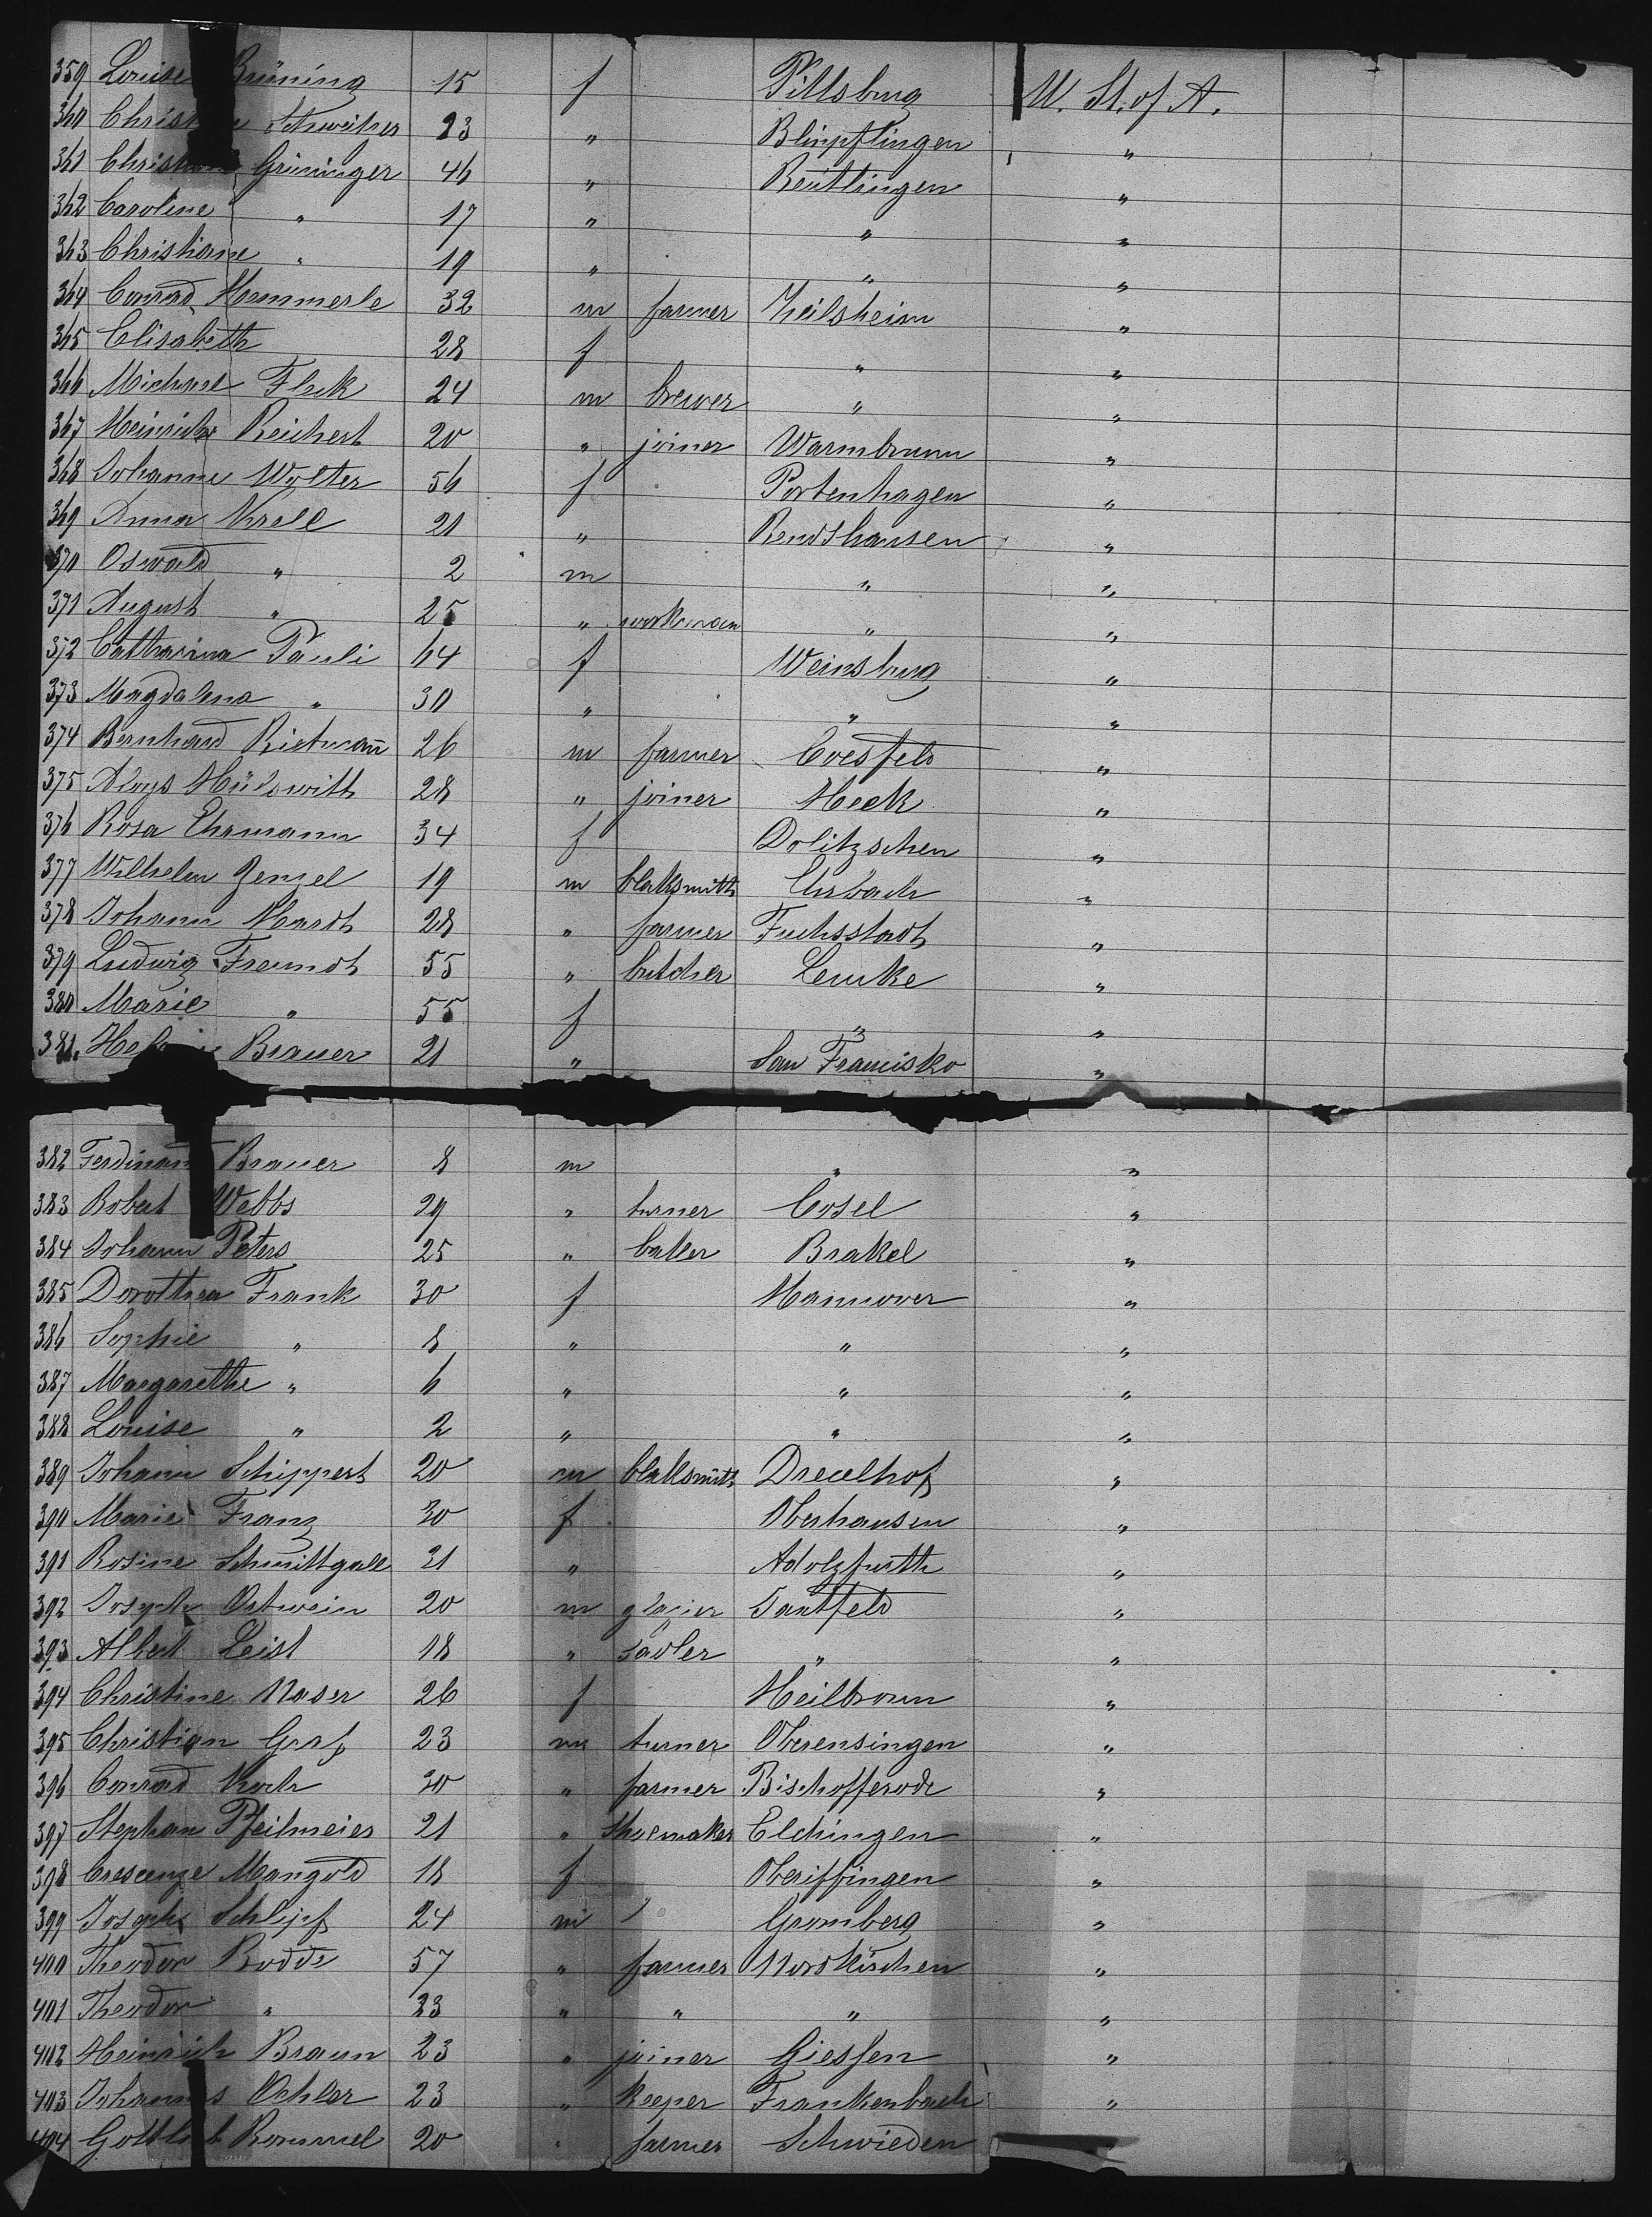 359 Louise Brüning 15 f Pittsburg U. St. of A.
360 Schweitzer 23 " Blimpflingen "
361 Grüninger 46 " Reutlingen "
362 Caroline " 17 " " "
363 Christiane " 19 " " "
364 Conrad Hemmerle 32 m farmer Zeilsheim "
365 Elisabeth 28 f " "
366 Michael Fleck 24 m brewer " "
367 Heinrich Reichert 20 " joiner Warmbrunn "
368 Johanne Wolter 56 f Portenhagen "
369 Anna Krell 21 " Rendshausen "
370 Oswald " 2 m " "
371 August " 25 " workman " "
372 Catharina Pauli 64 f Weinsburg "
373 Magdalena " 30 " " "
374 Bernhard Rietmann 26 m farmer Coesfeld "
375 Aloys Hülswitt 28 " joiner Heek "
376 Rosa Ehrmann 34 f Dolitzschen "
377 Wilhelm Zenzel 19 m blaksmith Ehrbach "
378 Johann Hardt 28 " farmer Fuchsstadt "
379 Ludwig Freundt 55 " butcher Lemke "
380 Marie " 55 f " "
381. Brauer 21 " San Francisko "
382 Ferdinand Brauer 8 m " "
383 Robert Webbs 29 " turner Cosel "
384 Johann Peters 25 " baker Brakel "
385 Dorothea Frank 30 f Hannover "
386 Sophie " 8 " " "
387 Margarethe " 6 " " "
388 Louise " 2 " " "
389 Johann Schippert 20 m blaksmith Drecelhof "
390 Marie Franz 30 f Oberhausen "
391 Rosine Schmittgall 21 " Adolzfurth "
392 Joseph Ostwein 20 m glazier Santfeld "
393 Albert Leist 18 " sadler " "
394 Christine Naser 26 f Heilbronn "
395 Christian Graf 23 m turner Oberensingen "
396 Conrad Koch 30 " farmer Bischofferode "
397 Stephan Pfeilmeier 21 " Shoemaker Elchingen "
398 Crescenze Mangold 18 f Oberiffingen "
399 Joseph Schlipf 24 m Gromberg "
400 Theodor Rodde 57 " farmer Nordkirchen "
401 Theodor " 23 " " " "
402 Heinrich Braun 23 " joiner Giessen "
403 Johannes Oehler 23 " keeper Frankenbach "
404 Gottlieb Rommel 20 " farmer Schwieden